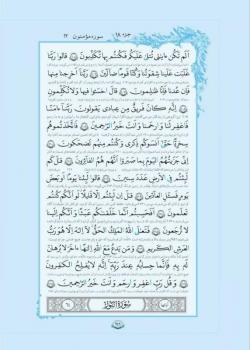 جزء ۱۸
سورة مؤمنون
أَلَمْ تَكُنْ ءَايَٰتِى تُتْلَىٰ عَلَيْكُمْ فَكُنتُم بِهَا تُكَذِّبُونَ قَالُوا۟ رَبَّنَا
غَلَبَتْ عَلَيْنَا شِقْوَتُنَا وَكُنَّا قَوْمًا ضَآلِّينَ رَبَّنَآ أَخْرِجْنَا مِنْهَا
فَإِنْ عُدْنَا فَإِنَّا ظَٰلِمُونَ قَالَ ٱخْسَـُٔوا۟ فِيهَا وَلَا تُكَلِّمُونِ
إِنَّهُۥ كَانَ فَرِيقٌ مِّنْ عِبَادِى يَقُولُونَ رَبَّنَآ ءَامَنَّا
فَٱغْفِرْ لَنَا وَٱرْحَمْنَا وَأَنتَ خَيْرُ ٱلرَّٰحِمِينَ فَٱتَّخَذْتُمُوهُمْ
سِخْرِيًّا حَتَّىٰٓ أَنسَوْكُمْ ذِكْرِى وَكُنتُم مِّنْهُمْ تَضْحَكُونَ
إِنِّى جَزَيْتُهُمُ ٱلْيَوْمَ بِمَا صَبَرُوٓا۟ أَنَّهُمْ هُمُ ٱلْفَآئِزُونَ قَٰلَ كَمْ
لَبِثْتُمْ فِى ٱلْأَرْضِ عَدَدَ سِنِينَ قَالُوا۟ لَبِثْنَا يَوْمًا أَوْ بَعْضَ
يَوْمٍ فَسْـَٔلِ ٱلْعَآدِّينَ قَٰلَ إِن لَّبِثْتُمْ إِلَّا قَلِيلًا لَّوْ أَنَّكُمْ كُنتُمْ
تَعْلَمُونَ أَفَحَسِبْتُمْ أَنَّمَا خَلَقْنَٰكُمْ عَبَثًا وَأَنَّكُمْ إِلَيْنَا
لَا تُرْجَعُونَ فَتَعَٰلَى ٱللَّهُ ٱلْمَلِكُ ٱلْحَقُّ لَآ إِلَٰهَ إِلَّا هُوَ رَبُّ
ٱلْعَرْشِ ٱلْكَرِيمِ وَمَن يَدْعُ مَعَ ٱللَّهِ إِلَٰهًا ءَاخَرَ لَا بُرْهَٰنَ
لَهُۥ بِهِۦ فَإِنَّمَا حِسَابُهُۥ عِندَ رَبِّهِۦٓ إِنَّهُۥ لَا يُفْلِحُ ٱلْكَٰفِرُونَ
وَقُل رَّبِّ ٱغْفِرْ وَٱرْحَمْ وَأَنتَ خَيْرُ ٱلرَّٰحِمِينَ
سُورَةُ النُّورِ